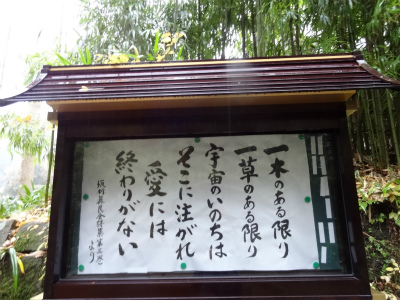 一木のある限り
一草のある限り
宇宙のいのちは
そこに注がれ
愛には
終わりがない
坂村真民全詩集第二巻
より